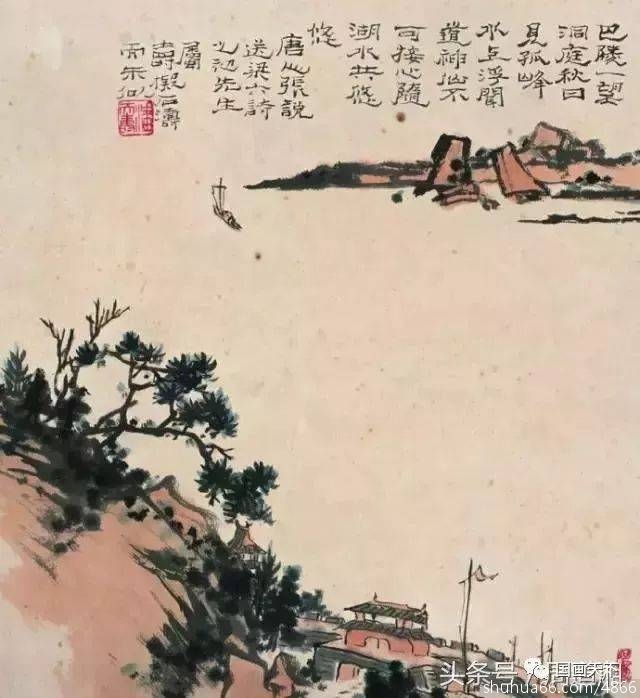 巴陵一望
洞庭秋日
見孤峰
水上浮聞
道神仙不
可接心隨
湖水共悠
悠
唐人張說
送梁六詩
先生
屬
壽擬石濤
头条号
shuhua66.com/4866